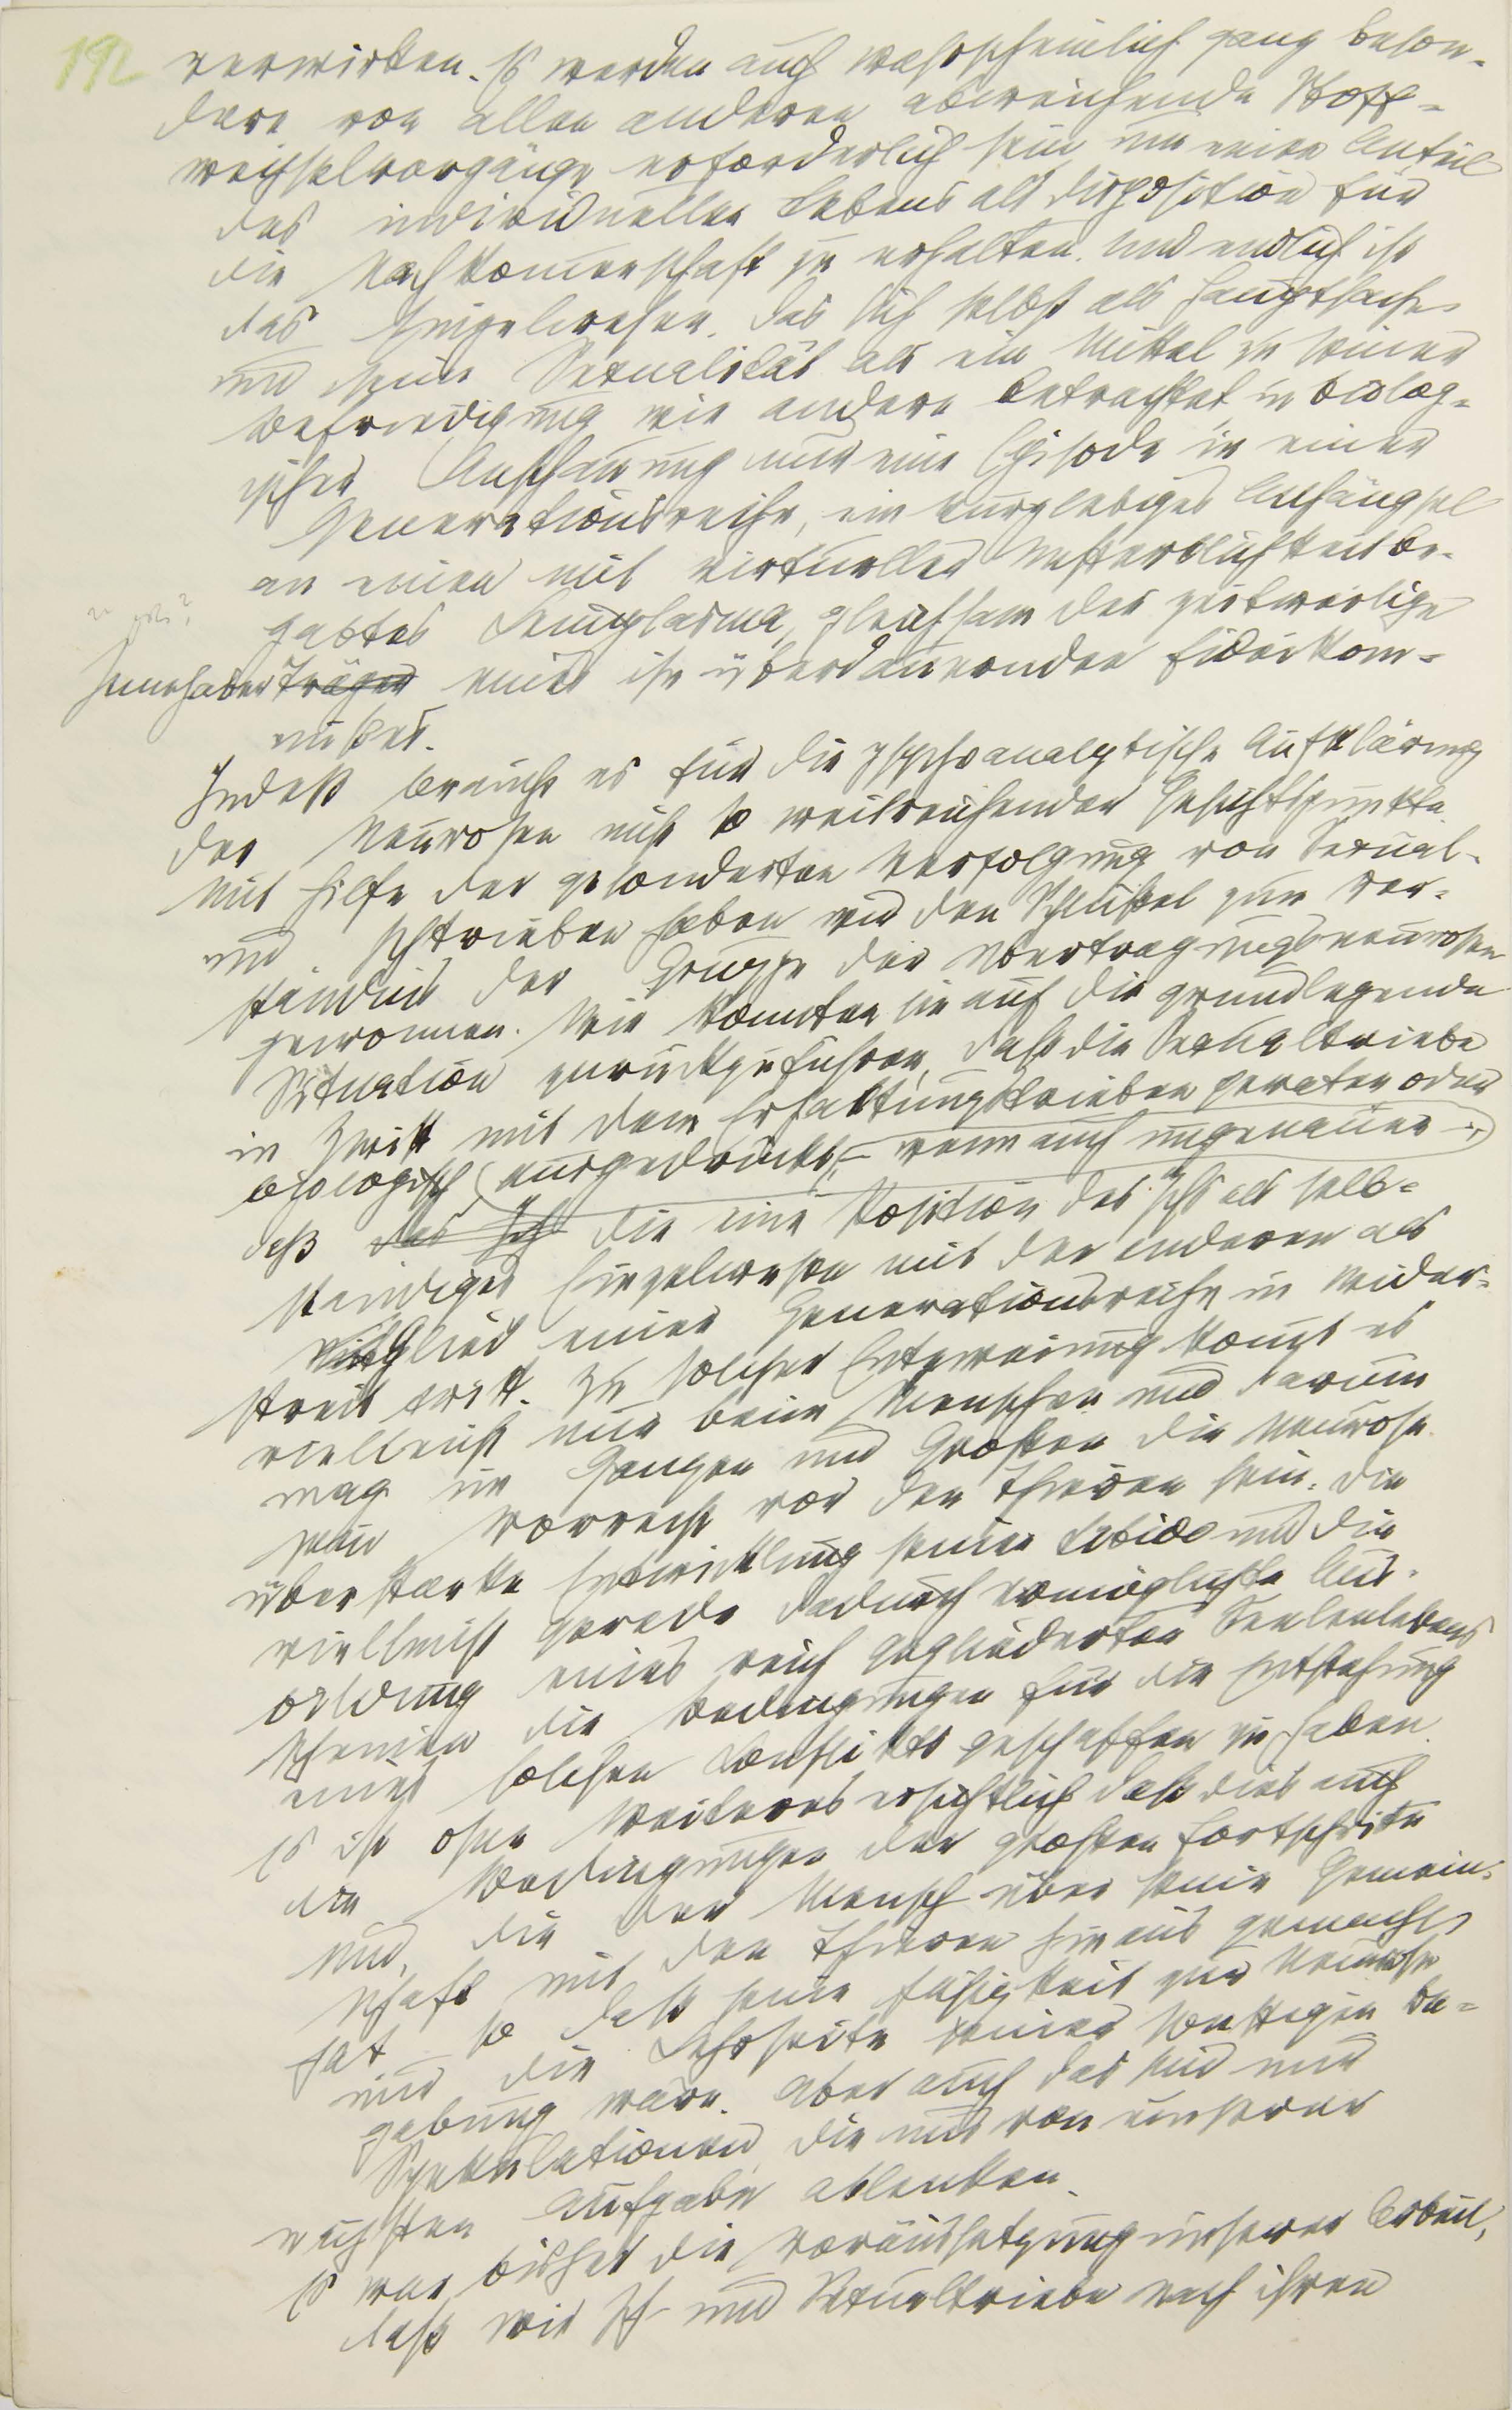 192
verwirken. Es werden auch wahrscheinlich ganz beson-
dere von allen anderen abweichende Stoff-
wechselvorgänge erforderlich sein um einen Anteil
des individuellen Lebens als Disposition für
die Nachkommenschaft zu erhalten. Und endlich ist
das Einzelwesen, das sich selbst als Hauptsache
und seine Sexualität als ein Mittel zu seiner
Befriedigung wie andere betrachtet in biolog-
ischer Anschauung nur eine Episode in einer
Generationsreihe, ein kurzlebiges Anhängsel
an einen mit virtueller Unsterblichkeit be-
gabtes Keimplasma, gleichsam der zeitweilige
Innehaber Träger eines ihn überdauernden Fideikom-
misses.
Indeß braucht es für die psychoanalytische Aufklärung
der Neurosen nicht so weitreichender Gesichtspunkte.
Mit Hilfe der gesonderten Verfolgung von Sexual-
und Ichtrieben haben wir den Schlüssel zum Ver-
ständnis der Gruppe der Übertragungsneurosen
gewonnen. Wir konnten sie auf die grundlegende
Situation zurückzuführen, daß die Sexualtriebe
in Zwist mit den Erhaltungstrieben geraten oder
biologisch ausgedrückt, – wenn auch ungenauer –
daß das Ich die eine Position des Ichs als selb-
ständiges Einzelwesen mit der anderen als
Mitglied einer Generationsreihe in Wider-
streit tritt. Zu solcher Entzweiung kommt es
vielleicht nur beim Menschen und darum
mag im Ganzen und Großen die Neurose
sein Vorrecht vor den Thieren sein. Die
überstarke Entwicklung seiner Libido und die
vielleicht gerade dadurch ermöglichte Aus-
bildung eines reich gegliederten Seelenlebens
scheinen die Bedingungen für die Entstehung
eines solchen Konflikts geschaffen zu haben.
Es ist ohne Weiteres ersichtlich daß dies auch
die Bedingungen der großen Fortschritte
sind, die der Mensch über seine Gemein-
schaft mit den Thieren hinaus gemacht
hat so daß seine Fähigkeit zur Neurose
nur die Kehrseite seiner sonstigen Be-
gabung wäre. Aber auch das sind nur
Spekulationen, die uns von unserer
nächsten Aufgabe ablenken.
Es war bisher die Voraussetzung unserer Arbeit,
daß wir Ich- und Sexualtriebe nach ihren